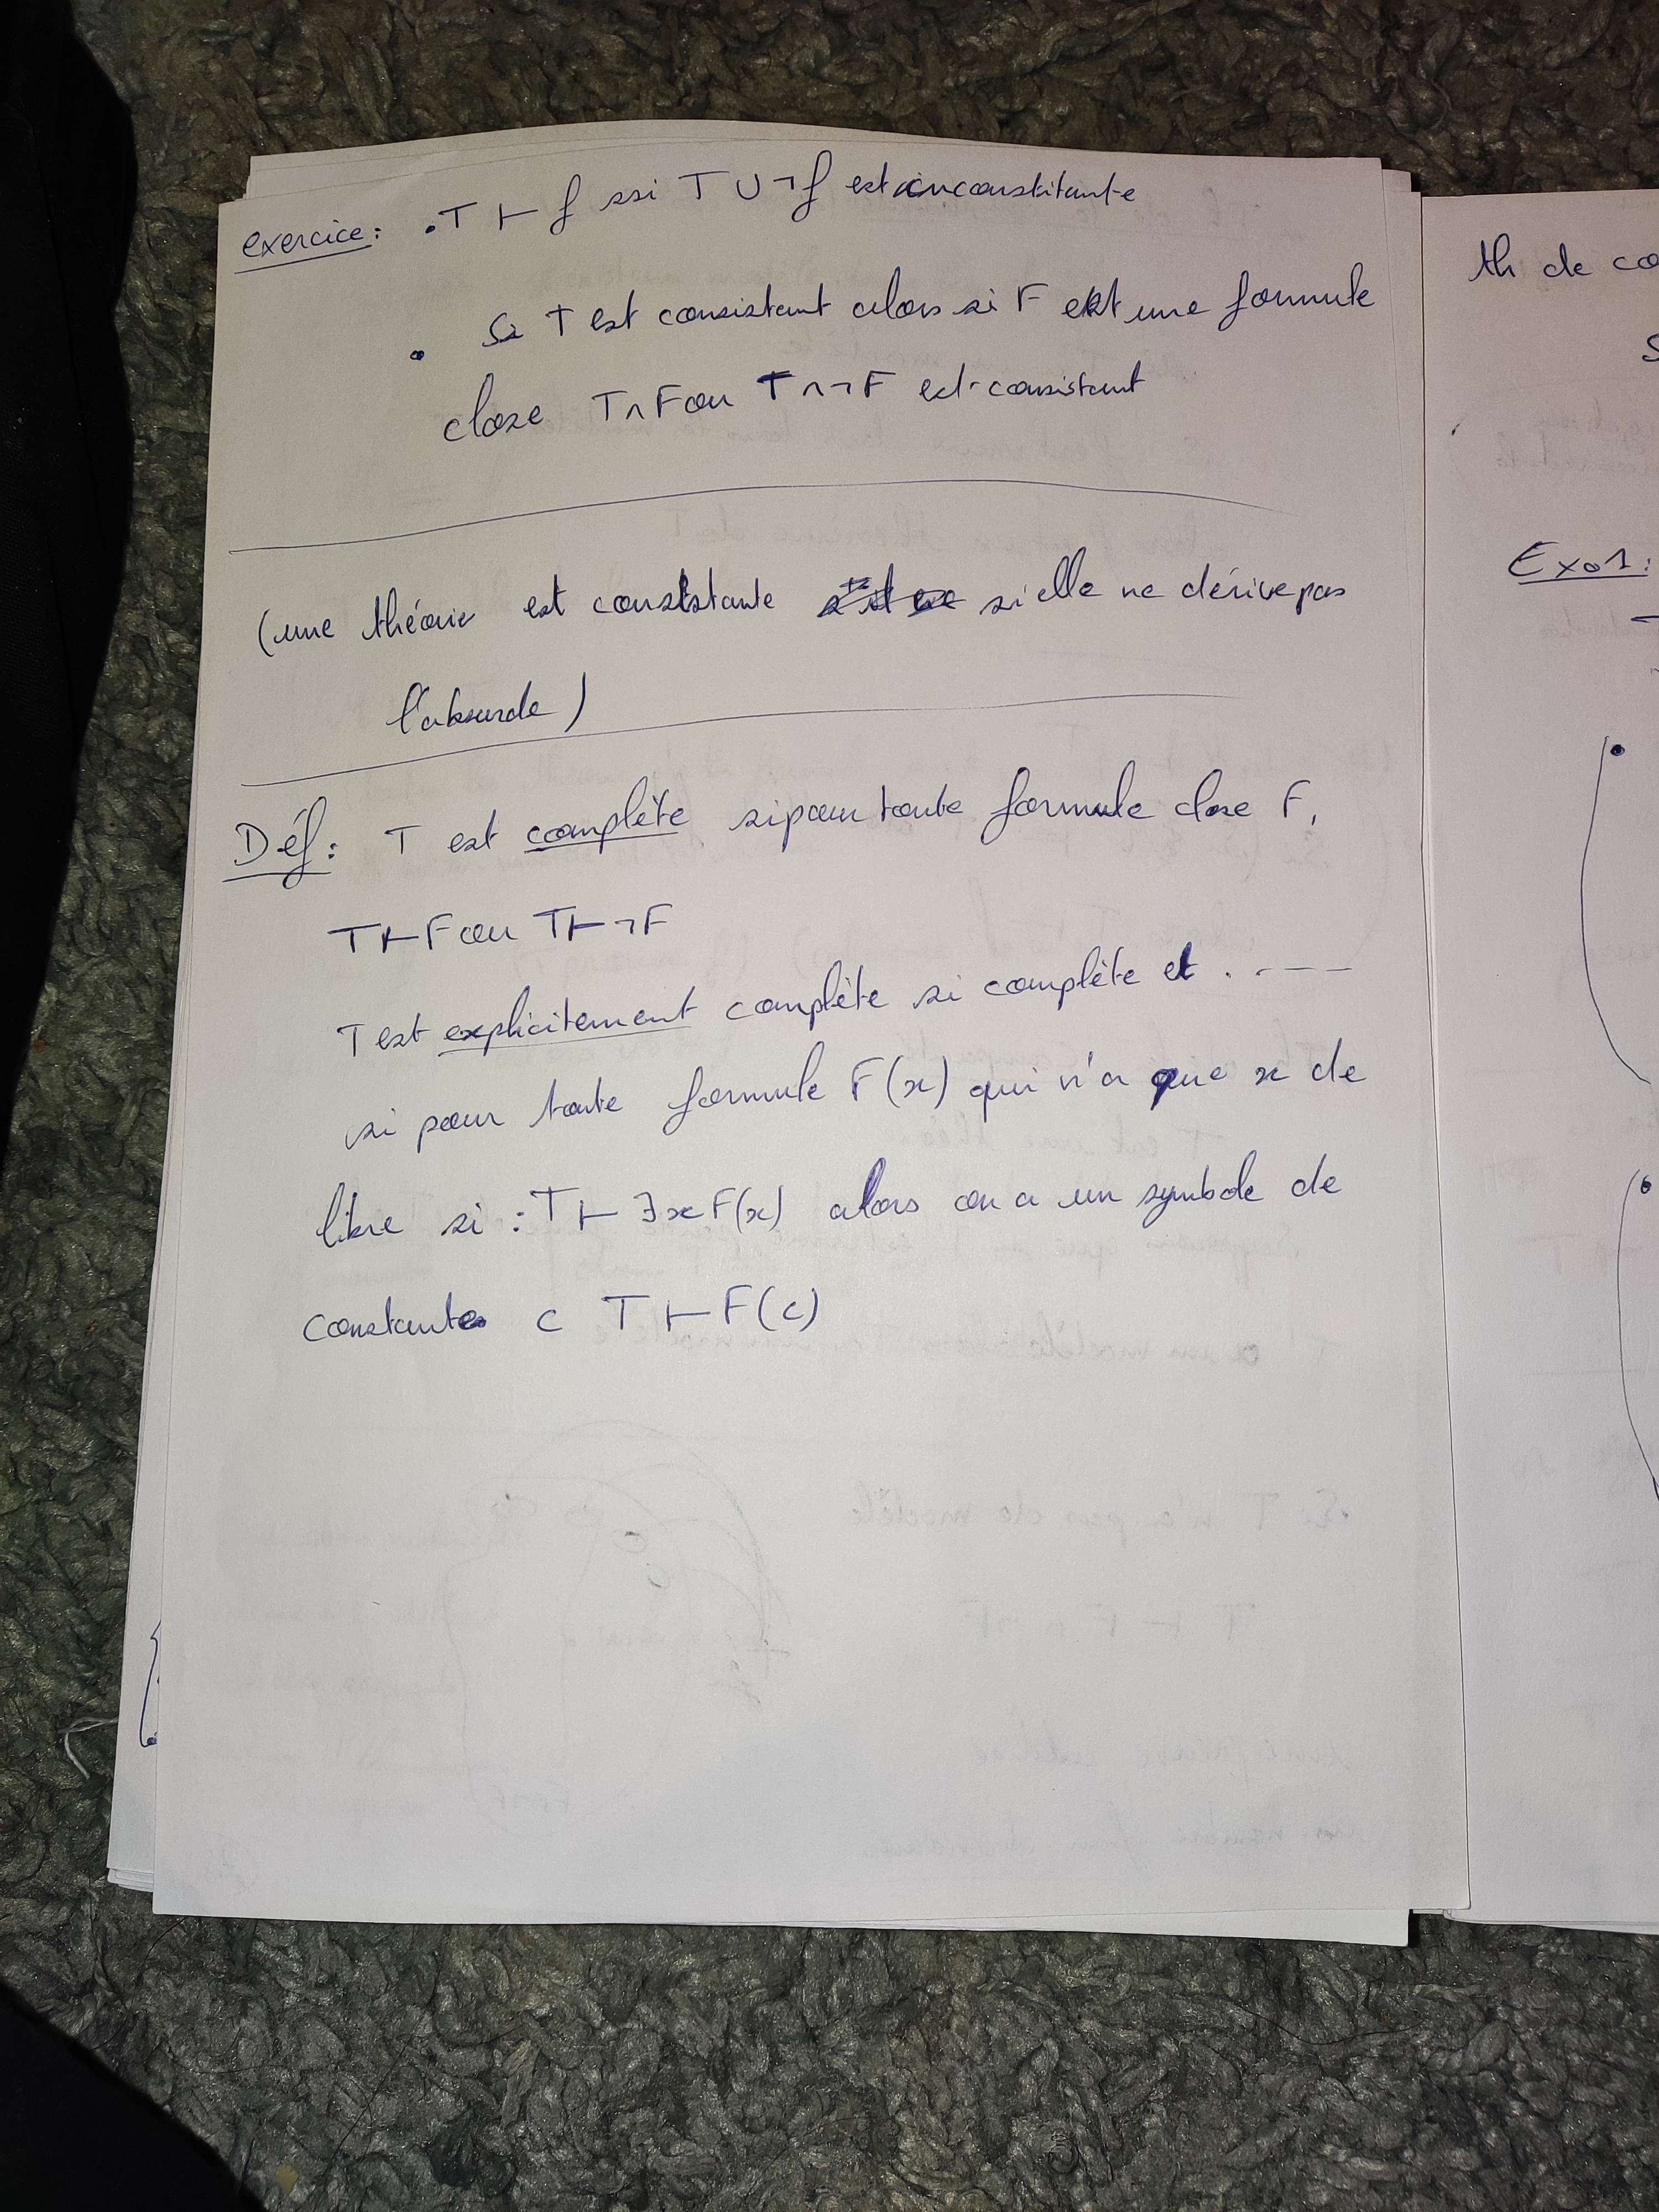 exercice: . T ⊢ f ssi T ∪ ¬f est inconstitante
. Si T est consistant alors si F est une formule
close T ∧ F ou T ∧ ¬F est consistant
(une théorie est consistante si elle ne dérive pas
l'absurde)
Déf: T est complète si pour toute formule close F,
T ⊢ F ou T ⊢ ¬F
T est explicitement complète si complète et . ----
si pour toute formule F(x) qui n'a que x de
libre si : T ⊢ ∃x F(x) alors on a un symbole de
constante c T ⊢ F(c)
th de co
S
Exo1: